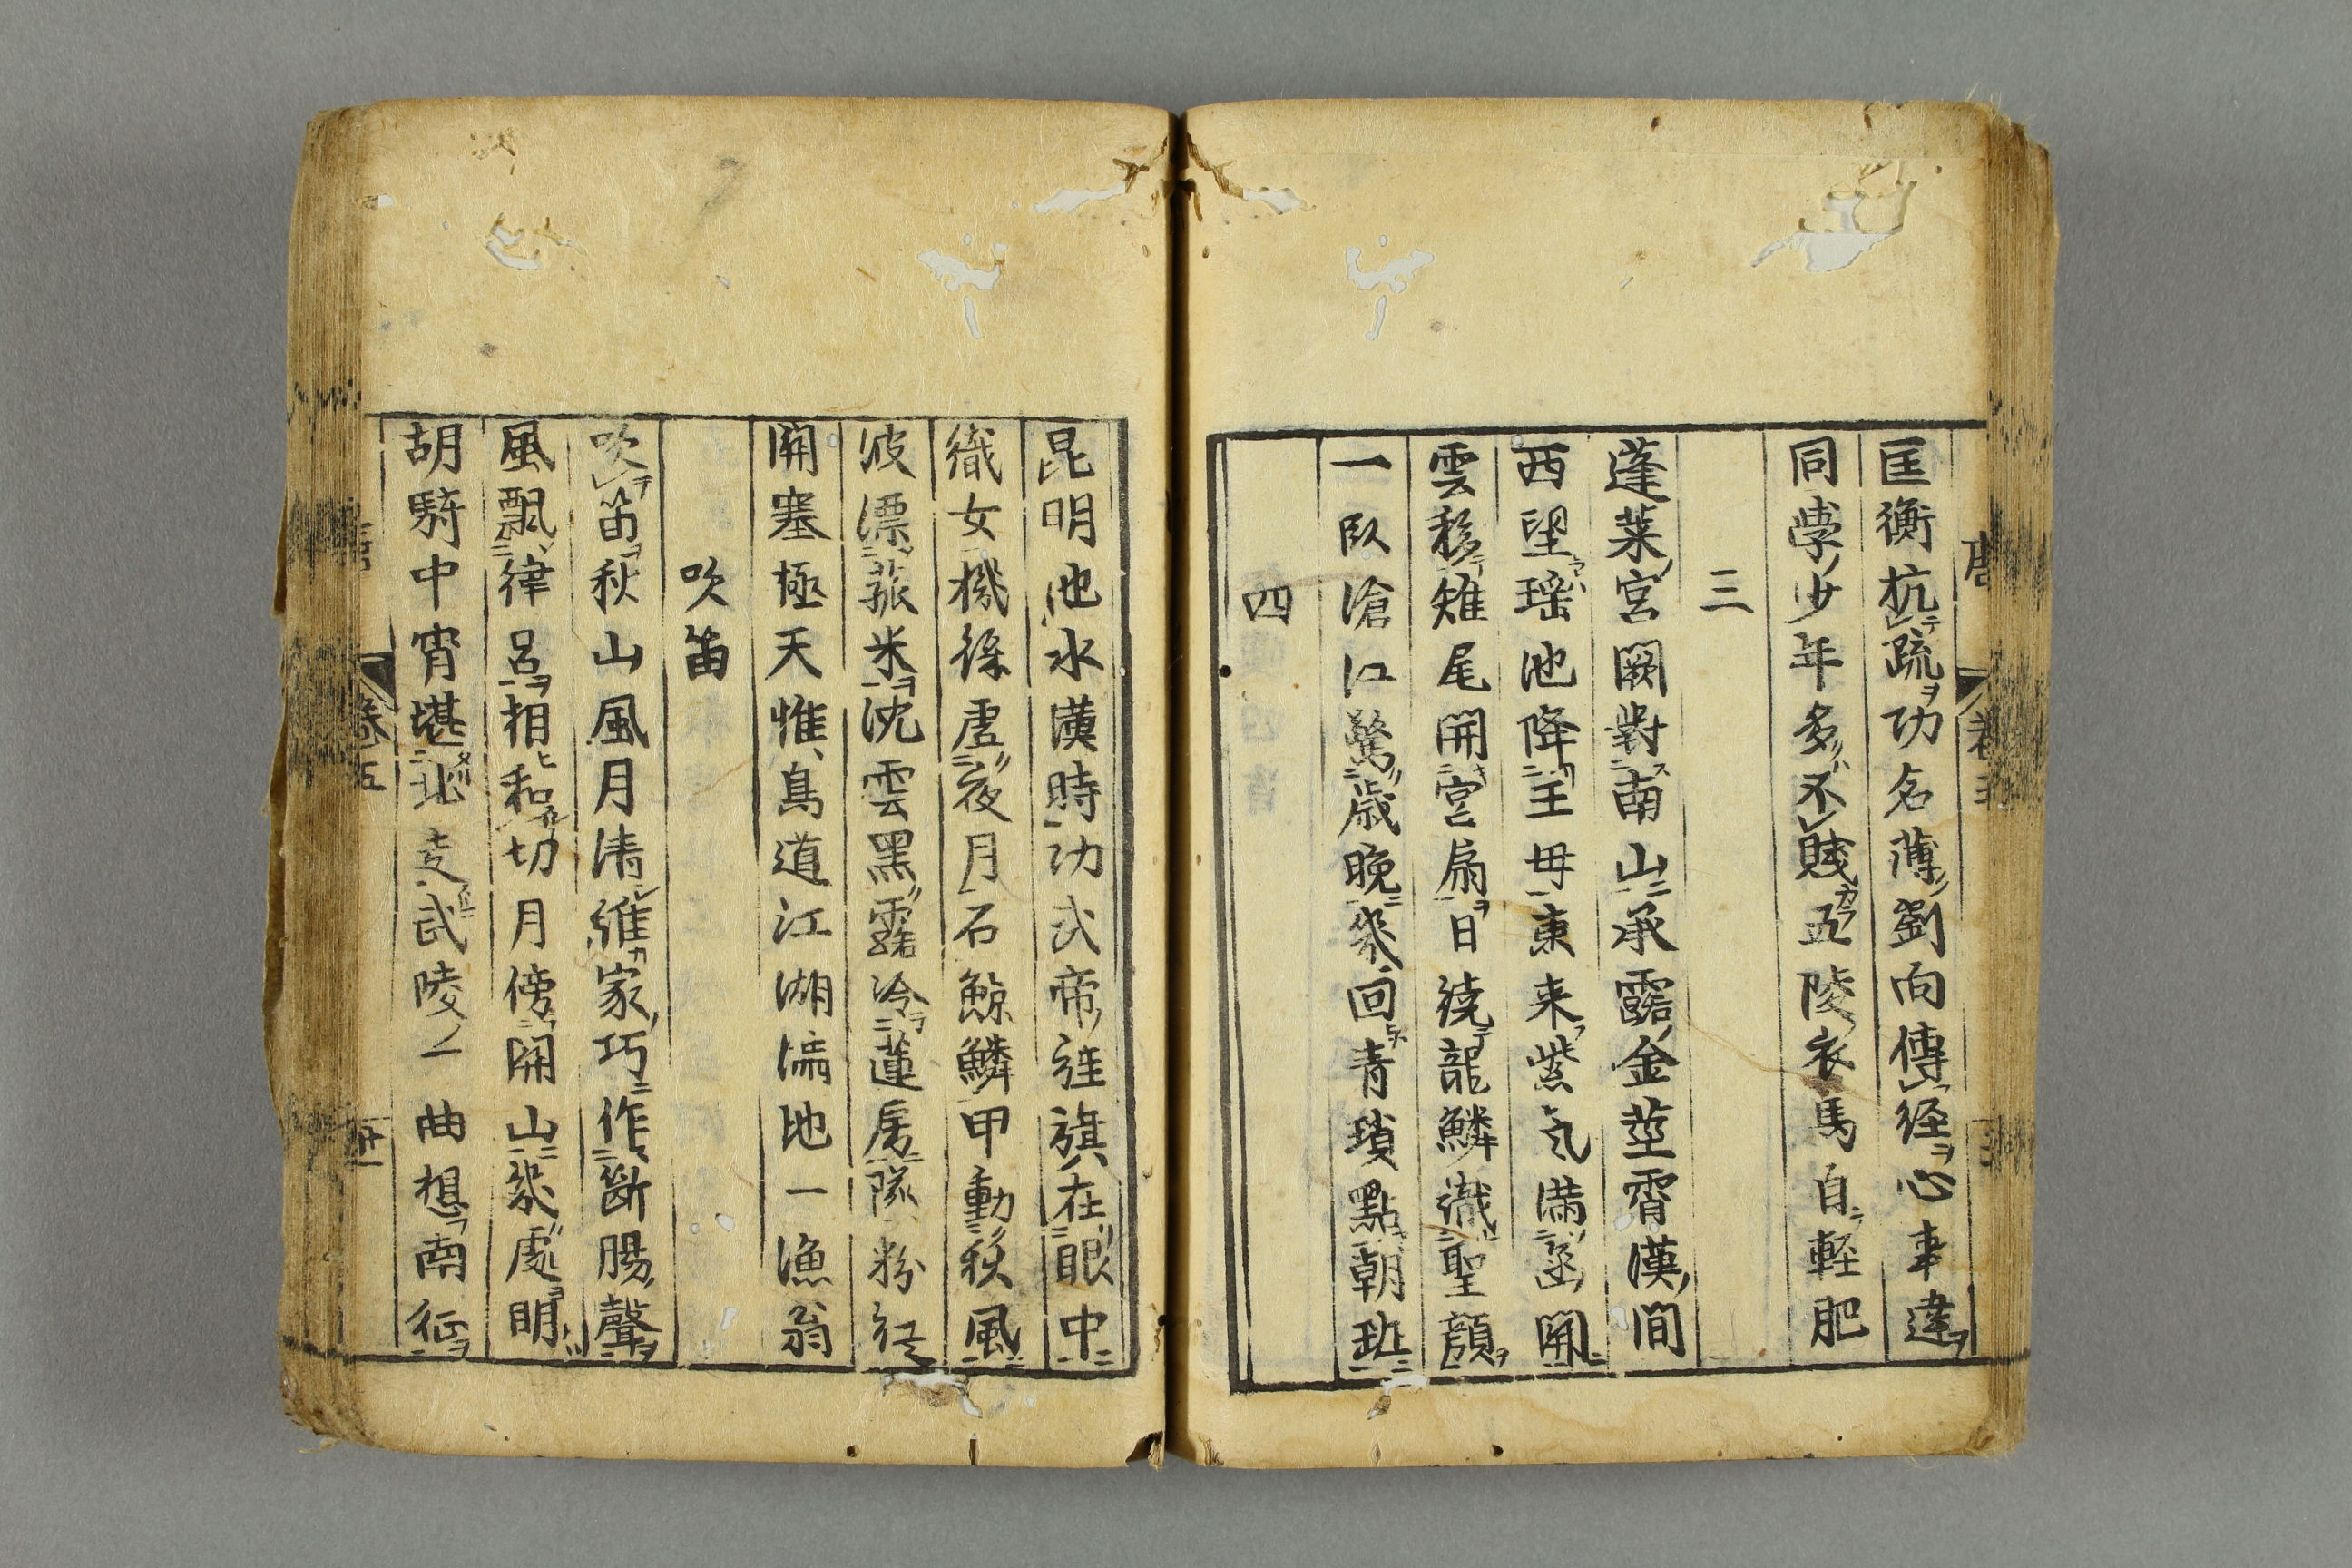 匡衡抗疏功名薄劉向傳経心事違
同學少年多不賤五陵衣馬自軽肥
三
蓬莱宮闕對南山承露金莖霄漢間
西望瑶池降王母東来紫气満函開
雲移雉尾開宮扇日繞龍鱗識聖顔
一臥滄江驚歳晩幾回青瑣點朝班
四
昆明池水漢時功武帝旌旗在眼中
織女機絲虚夜月石鯨鱗甲動秋風
波漂菰米沈雲黑露冷蓮房墜粉紅
関塞極天惟鳥道江湖満地一漁翁
吹笛
吹笛秋山風月清誰家巧作断腸聲
風飄律呂相和切月傍関山幾處明
胡騎中宵堪北走武陵一曲想南征
卷五